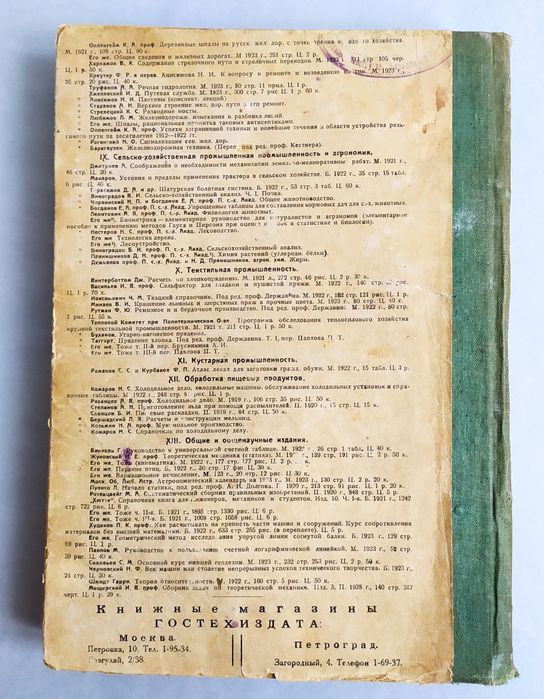 Оппенгейм К. А. проф. Деревянные шпалы на русск. жел. дор. с точки зрения хозяйства.
М. 1921 г. 109 стр. Ц. 90 к.
Его же. Общие сведения о железных дорогах. М. 1923 г., 251 стр. Ц. 2 р.
Харламов В. К. Содержание стрелочного пути и стрелочных переводов. М. 1923 стр. 105 чер.
Ц. 1 р. 50 к.
Креутер Ф. Р. в перев. Анисимова Н. И. К вопросу о ремонте и возведению М. 1923 г.,
35 стр. 20 рис. Ц. 40 к.
Труфанов А. А. Речная гидрология. М. 1923 г., 80 стр. 11 прил. Ц. 1 р.
Кмелевский И. Д. Путевая служба. М. 1923 г., 300 стр. 7 рис Ц. 1 р. 60 к.
Анисимов Н. И. Плотины (конспект. лекций)
Стаханов А. Н. Верхнее строение жел. дор. пути и его ремонт.
Стрелецкий К. С. Разводные мосты.
Любимов Л. М. Железнодорожн. изыскания и разбивка линий.
Его же. Шпалы, рациональная пропитка таковых антисептиками.
Оппенгейм К. А. проф. Успехи заграничной техники и новейшие течения в области устройства рель-
сового пути за десятилетие 1912—1922 гг.
Рогинский Н. О. Сигнализация сев. жел. дор.
Баркгаузен. Железнодорожная техника. (Перев. под ред. проф. Кестнера).
IX. Сельско-хозяйственная промышленная промышленность и агрономия.
Дмитриев А. Соображения о необходимости механизации земельно-мелиоративны работ. М. 1921 г.,
46 стр. Ц. 20 к.
Макаров. Условия и пределы применения трактора в сельском хозяйстве. Б. 1922 г., 35 стр. 15 табл.
6 рис Ц. 40 к.
Герасимов Д. А. и др. Шатурская болотная система. Б. 1922 г., 53 стр. 3 таб. Ц. 60 к.
Виноградов В. И. Сельско-хозяйственный анализ. Ч. I. Почва.
Червинский Н. П. и Богданов Е. А. проф. П.-с.-х. Акад. Общее животноводство.
Богданов Е. А. проф. П.-с.-х. Акад. Упрощенные таблицы для составления кормовых дач для с.-х. животных.
Леонтович А. В. проф. П.-с.-х. Акад. Физиология животных.
Его же. Биометрика — элементарное руководство для натуралистов и агрономов (элементарное
пособие к применению методов Гауса и Пирсона при оценке в статистике и биологии).
Нестеров Н. С. проф. П.-с.-х. Акад. Лесоводство.
Его же Технология дерева.
Его же. Лесоустройство.
Виноградов В. И. проф. П.-с.-х. Акад. Сельскохозяйственный анализ.
Прянишников Д. Н. проф. П.-с.-х. Акад. Химия растений (углероди. белки).
Демьянов проф. П.-с.-х. Акад. и Н. Д. Прянишников, агрон. хим. Жиры.
X. Текстильная промышленность.
Винтерботтом Дж. Расчеты по хлопкопрядению. М. 1921 г., 272 стр. 46 рис. Ц. 2 р. 30 к.
Васильев И. В. проф. Сельфактор для гладкой и пушистой пряжи. М. 1922 г., 140
Ц. 1 р. 70 к.
Иоксимович Ч. М. Ткацкий справочник. Под ред. проф. Державина. М. 1922 г., 182 стр. 121 рис. Ц. 1 р.
Минаев В. И. Крашение льняных и шерстяных пряж в прочные цвета. М. 1923 г., 80 стр. Ц. 60 к.
Рутман Ф. Ю. Ремизное и бердочное производство. Под ред. проф. Державина. М. 1922 г., 80 стр.
1 рис. Ц. 55 к.
Тепловой Комитет при Политехническом О-ве. Программа обследования теплосилового хозяйства
крупной текстильной промышленности. М. 1921 г. 211 стр. Ц. 1 р. 50 к.
Буданов. Угарно-вигоневое прядение.
Таггарт. Прядение хлопка. Под ред. проф. Державина. Т. I, пер. Павлова П. Т.
Его же. Тоже т. II-й пер. Брусникина А. И.
Его же. Тоже т. III-й пер. Павлова П. Т.
XI. Кустарная промышленность.
Романов С. С. и Курбатов Ф. П. Атлас лекал для заготовки гранд. обуви. М. 1922 г., 15 табл. Ц. 3 р.
XII. Обработка пищевых продуктов.
Комаров Н. С. Холодильное дело, холодильные машины, обслуживание холодильных установок и спра-
вочные таблицы. М. 1922 г. 248 стр. 8 рис. Ц. 1 р.
Рязанцев А. В. проф. Холодильное дело. М. 1919 г., 106 стр. 35 рис. Ц. 50 к.
Степанов А. Н. Приготовление льда при помощи распылителей. П. 1920 г., 15 стр. Ц. 15 к.
Славцев Б. И. Пищевые раскладки. П. 1919 г., 84 стр. Ц. 50 к.
Бершадский Л. Я. Расчеты и конструкции мельниц.
Козьмин Н. П. проф. Мукомольное производство.
Комаров Н. С. Справочник по холодильному делу.
XIII. Общие и общенаучные издания.
Руководство к универсальной счетной таблице. М. 192 г., 26 стр. 1 табл. Ц. 40 к.
проф. Теоретическая механика (статика). М. г., 139 стр. 191 рис. Ц. 2 р. 50 к.
Его же. Тоже (кинематика). М. 1922 г., 177 стр. 177 рис. Ц. 2 р. к.
Его же. Парение птиц. Б. 1922 г., 30 стр. 17 фиг. Ц. 30 к.
Его же. Вариационное исчисление. М. 123 г., 20 стр. 12 рис Ц. 30 к.
Моск. Об. Люб. Астр. Астрономический календарь на 1923 г. М. 1923 г., 130 стр. Ц. 2 р. 20 к.
Пуйлко Л. Начало оптики, под ред. проф. А. Н. Долгова. Г. 1920 г., 213 стр. 91 рис. Ц. 1 р. 20 к.
Розенцвейг М. А. Систематический сборник правильных изобретений. П. 1920 г., 848 стр. Ц. 5 р.
„Хютте". Справочная книга для инженеров, механиков и студентов. Изд. 10. Ч. 1-я. Б. 1921 г., 1242
стр. 732 рис. Ц. 6 р.
Его же. Тоже ч. II-я. Б. 1921 г., 1895 стр. 1330 рис. Ц. 6 р.
Его же. Тоже ч. III-я. Б. 1921 г., 1009 стр. 1058 рис. Ц. 6 р.
Худяков П. К. проф. Как расчитывать на крепость части машин и сооружений. Курс сопротивления
материалов без высшей математики. Б. 1922 г., 633 стр. 255 рис. (в переплете). Ц. 5 р.
Его же. Геометрический метод исследования упругой линии согнутой балки. Б. 1923 г., 129 стр.
69 рис. Ц. 1 р.
Павлов М. Руководство к пользованию счетной логарифмической линейкой. М. 1923 г., 52 стр.
39 рис. Ц. 40 к.
Соловьев С. М. Основной курс низшей геодезии. М. 1923 г., 232 стр. 253 рис. Ц. 2 р. 50 к.
Черновский Н. Ф. Век машин или столетие непрерывных успехов технического творчества. Б. 1923 г.,
24 стр. Ц. 30 к.
Шмидт Гарри. Теория относительности. М. 1922 г., 160 стр. 5 рис. Ц. 50 к.
Мещерский И. В. проф. Сборник задач по теоретической механике. Изд. 3, П. 1928 г., 140 стр. 367
черт. Ц. 1 р. 20 к.
Книжные магазины
ГОСТЕХИЗДАТА:
Москва.
Петровка, 10. Тел. 1-95-34.
Разгуляй, 2/38.
Петроград.
Загородный, 4. Телефон 1-69-37.